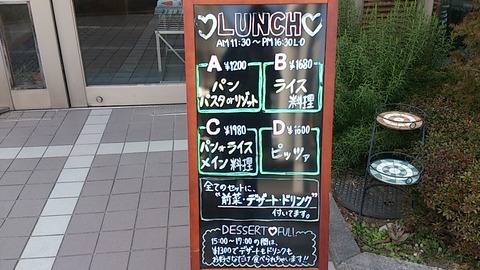 LUNCH
AM11:30~PM16:30L.O
A ¥1200
パン
パスタorリゾット
B ¥1680
ライス
料理
C ¥1980
パンorライス
メイン料理
D ¥1600
ピッツァ
全てのセットに、
"前菜・デザート・ドリンク"
付いてます。
DESSERT♡FUL!
15:00~17:00の間は、
¥1300でデザートもドリンクも
お好きなだけ食べられちゃいます!!